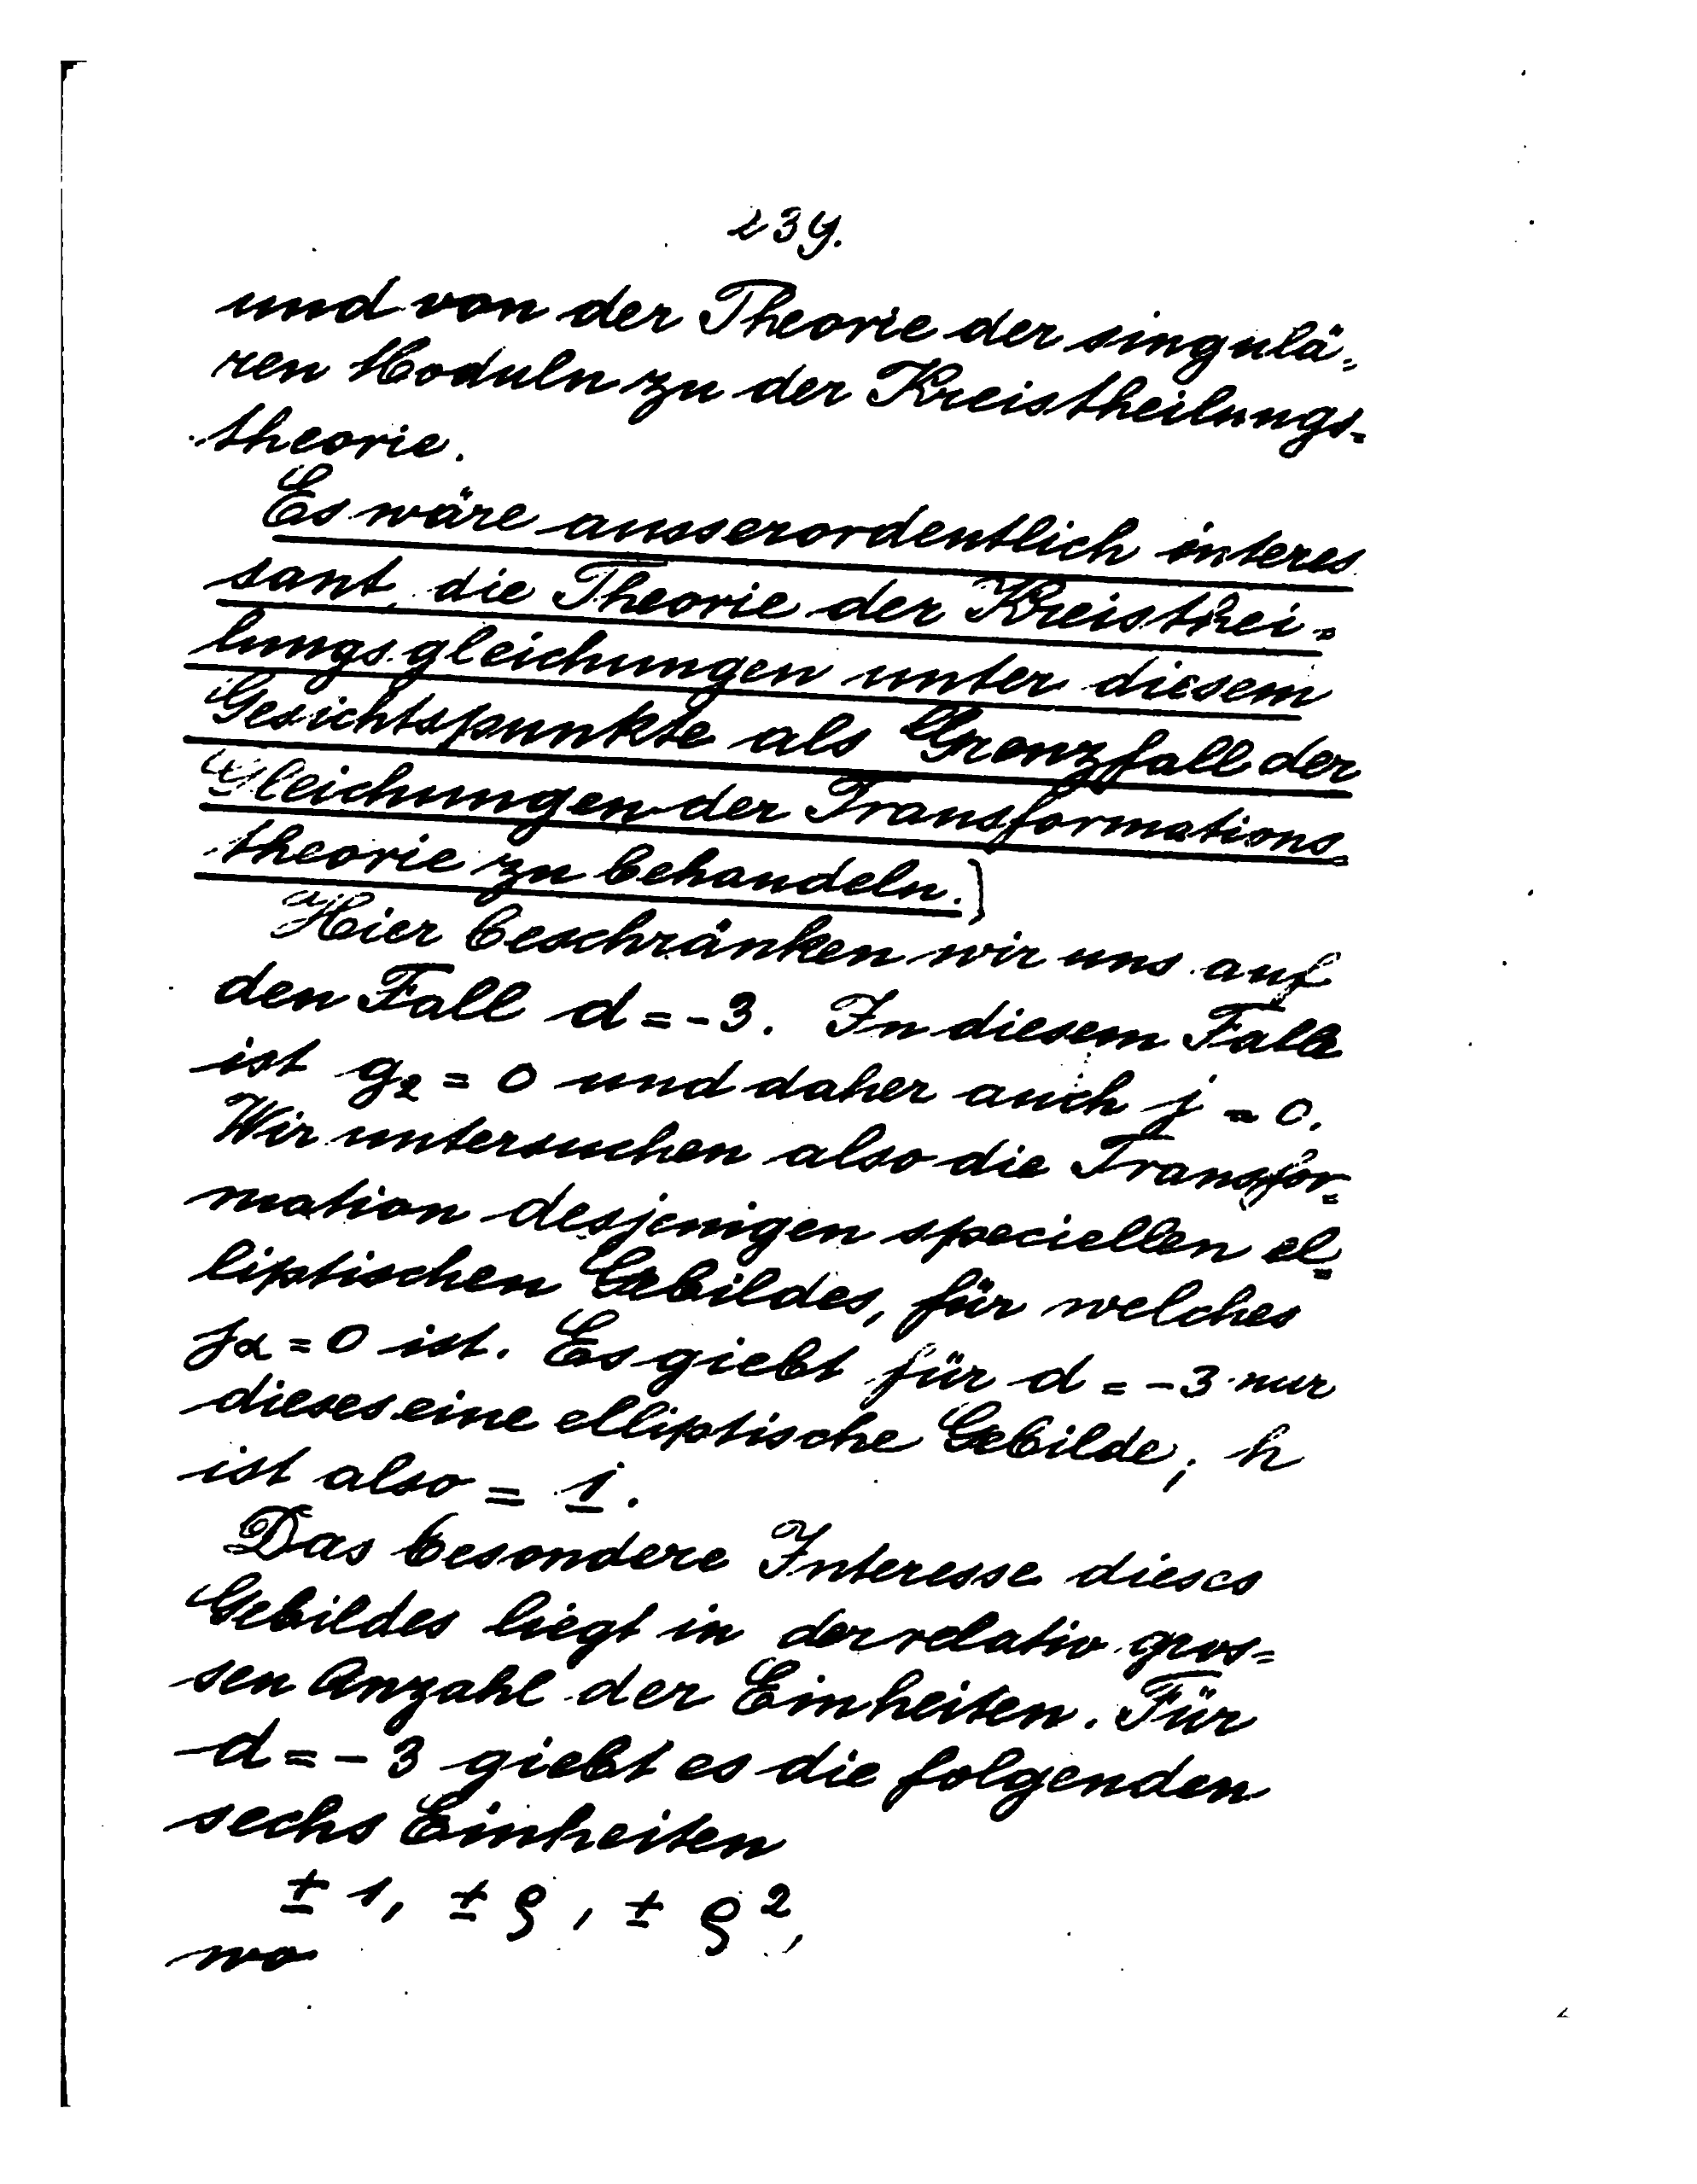 239.
und von der Theorie der singulä-
ren Moduln zu der Kreistheilungs-
theorie.
Es wäre ausserordentlich interes
sant, die Theorie der Kreisthei-
lungsgleichungen unter diesem
Gesichtspunkte als Grenzfall der
Gleichungen der Transformations-
theorie zu behandeln.]
Hier beschränken wir uns auf
den Fall d = -3. In diesem Falle
ist g₂ = 0 und daher auch j = 0.
Wir untersuchen also die Transfor-
mation desjenigen speciellen el-
liptischen Gebildes, für welches
jα = 0 ist. Es giebt für d = -3 nur
dieses eine elliptische Gebilde; h
ist also = 1.
Das besondere Interesse dieses
Gebildes liegt in der relativ gros-
sen Anzahl der Einheiten. Für
d = -3 giebt es die folgenden
sechs Einheiten
± 1, ± ϱ, ± ϱ²,
wo